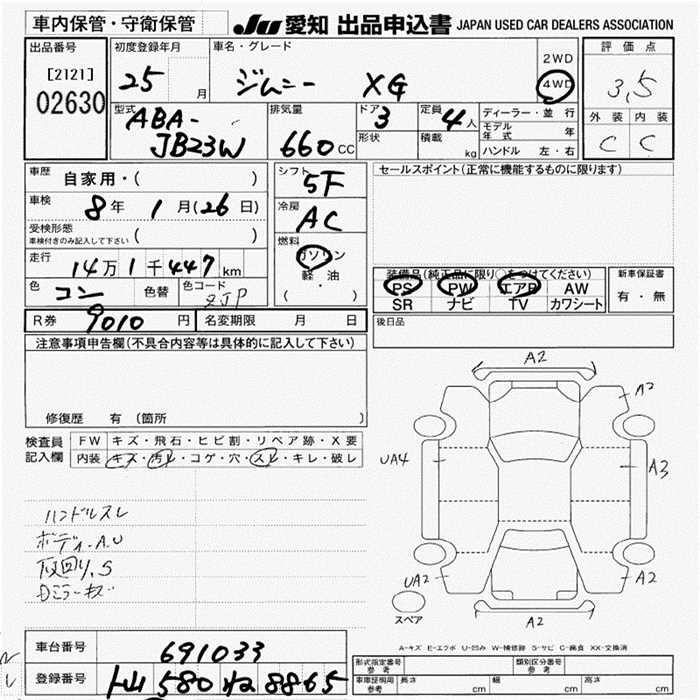 車内保管・守衛保管
JU 愛知 出品申込書 JAPAN USED CAR DEALERS ASSOCIATION
出品番号
[2121]
02630
初度登録年月
25 月
車名・グレード
ジムニー XG
2WD
4WD
評価点
3,5
外装 内装
C C
型式
ABA-
JB23W
排気量
660 CC
ドア
3
形状
定員
4人
積載
kg
ディーラー・並行
モデル年式 年
ハンドル 左・右
車歴
自家用・( )
車検
8年 1月(26日)
受検形態
車検付きのみ記入して下さい ( )
走行
14万1千447km
色
コン
色替
色コード
ZJP
シフト
5F
冷房
AC
燃料
ガソリン
軽・油
( )
セールスポイント(正常に機能するものに限ります)
装備品(純正品に限り○をつけてください)
PS PW エアB AW
SR ナビ TV カワシート
新車保証書
有・無
R券 9010 円
名変期限 月 日
後日品
注意事項申告欄(不具合内容等は具体的に記入して下さい)
修復歴 有 (箇所
検査員
記入欄
FW キズ・飛石・ヒビ割・リペア跡・X要
内装 キズ・汚レ・コゲ・穴・スレ・キレ・破レ
ハンドルスレ
ボディ.A.U
下回り.S
Dミラーキズ
A2
A2
UA4
A3
UA2
A2
A2
スペア
A-キズ E-エクボ U-凹み W-補修跡 S-サビ C-腐食 XX-交換済
車台番号
691033
登録番号
580 8865
形式指定番号
参考
類別区分番号
参考
車庫証明用
参考
長さ cm 幅 cm 高さ cm